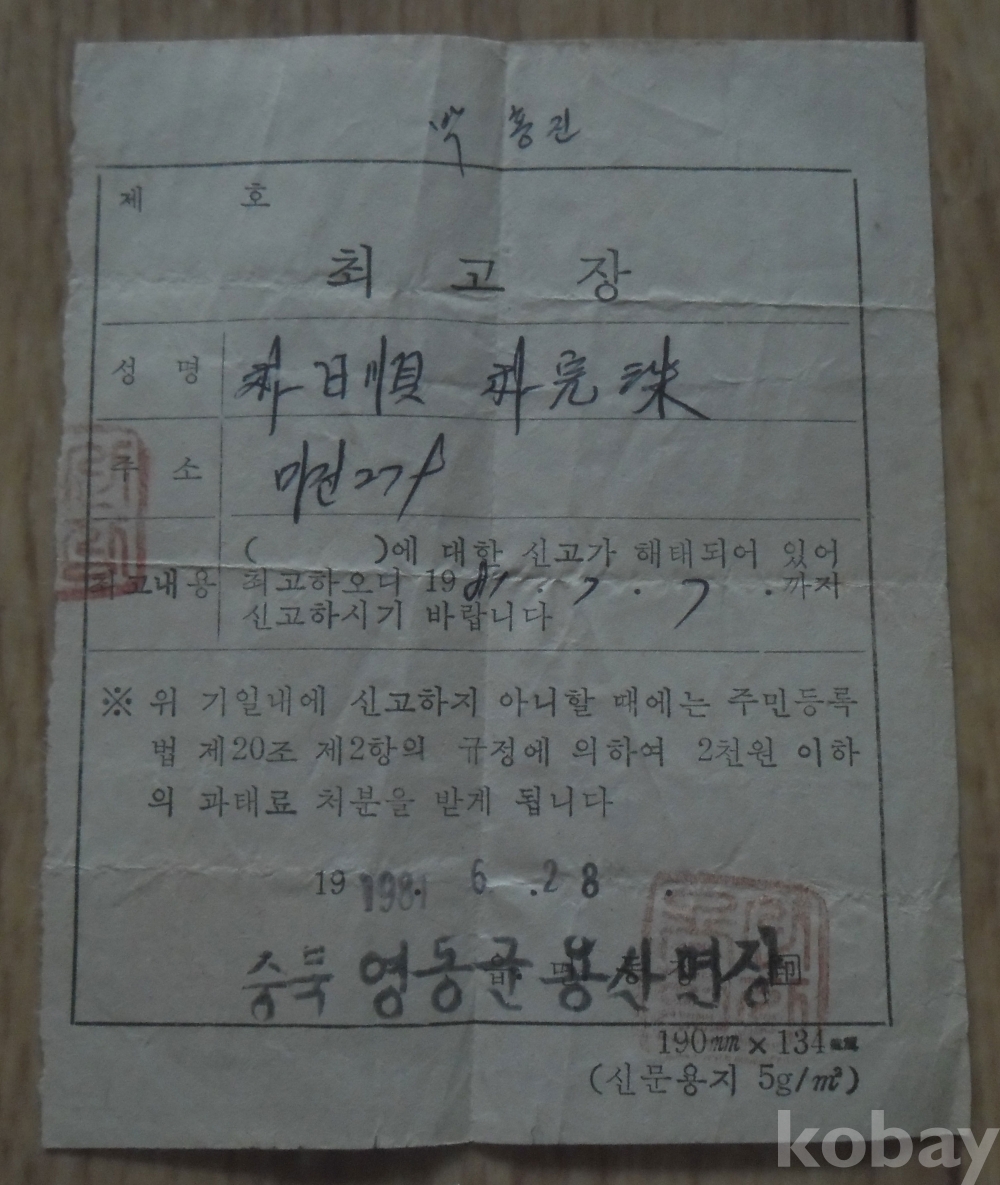 홍진
제 호
최 고 장
성 명 朴日順 朴完洙
주 소 미전2구
( )에 대한 신고가 해태되어 있어
최고내용 최고하오니 1981. 7. 7 .까지
신고하시기 바랍니다
※ 위 기일내에 신고하지 아니할 때에는 주민등록
법 제20조 제2항의 규정에 의하여 2천원 이하
의 과태료 처분을 받게 됩니다
19 1981. 6 .28 .
충북 영동군 용산면장 印
190mm × 134mm
(신문용지 5g/㎡)
kobay